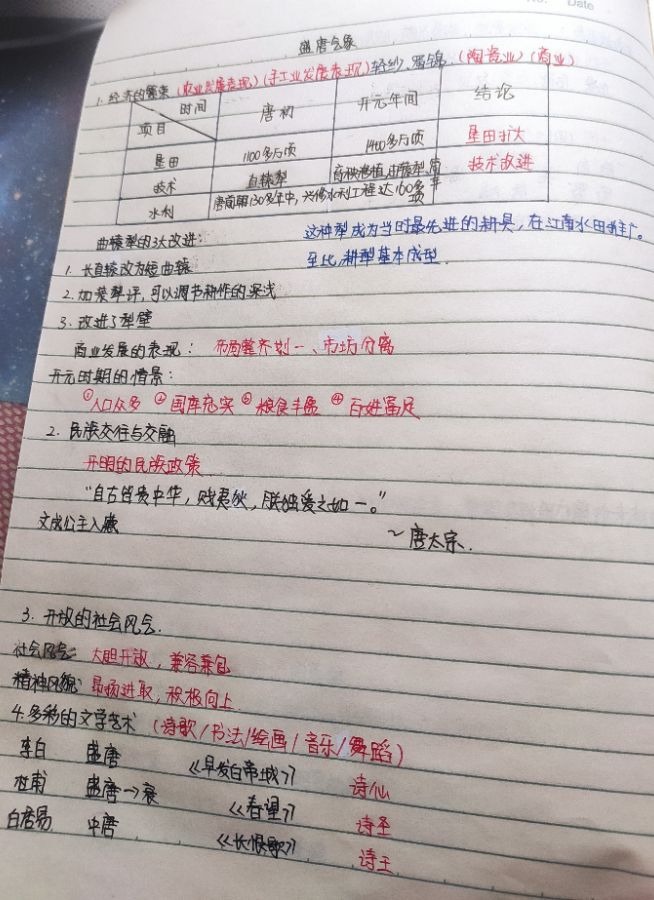 No. Date
盛唐气象
1. 经济的繁荣（农业发展表现）（手工业发展表现）轻纱、蜀锦（陶瓷业）（商业）
时间 项目 唐初 开元年间 结论
垦田 1100多万顷 1400多万顷 垦田扩大
技术 直辕犁 育秧移植、曲辕犁、筒车 技术改进
水利 唐前期130多年中，兴修水利工程达160多项
曲辕犁的3大改进： 这种犁成为当时最先进的耕具，在江南水田推广。
1. 长直辕改为短曲辕 至此，耕犁基本成型.
2. 加装犁评，可以调节耕作的深浅
3. 改进了犁壁
商业发展的表现： 布局整齐划一、市坊分离
开元时期的情景：
①人口众多 ②国库充实 ③粮食丰盈 ④百姓富足
2. 民族交往与交融
开明的民族政策
“自古皆贵中华，贱夷狄，朕独爱之如一。”
文成公主入藏 ~唐太宗.
3. 开放的社会风气.
社会风气: 大胆开放，兼容兼包
精神风貌: 昂扬进取，积极向上.
4. 多彩的文学艺术（诗歌/书法/绘画/音乐/舞蹈）
李白 盛唐 《早发白帝城》 诗仙
杜甫 盛唐→衰 《春望》 诗圣
白居易 中唐 《长恨歌》 诗王